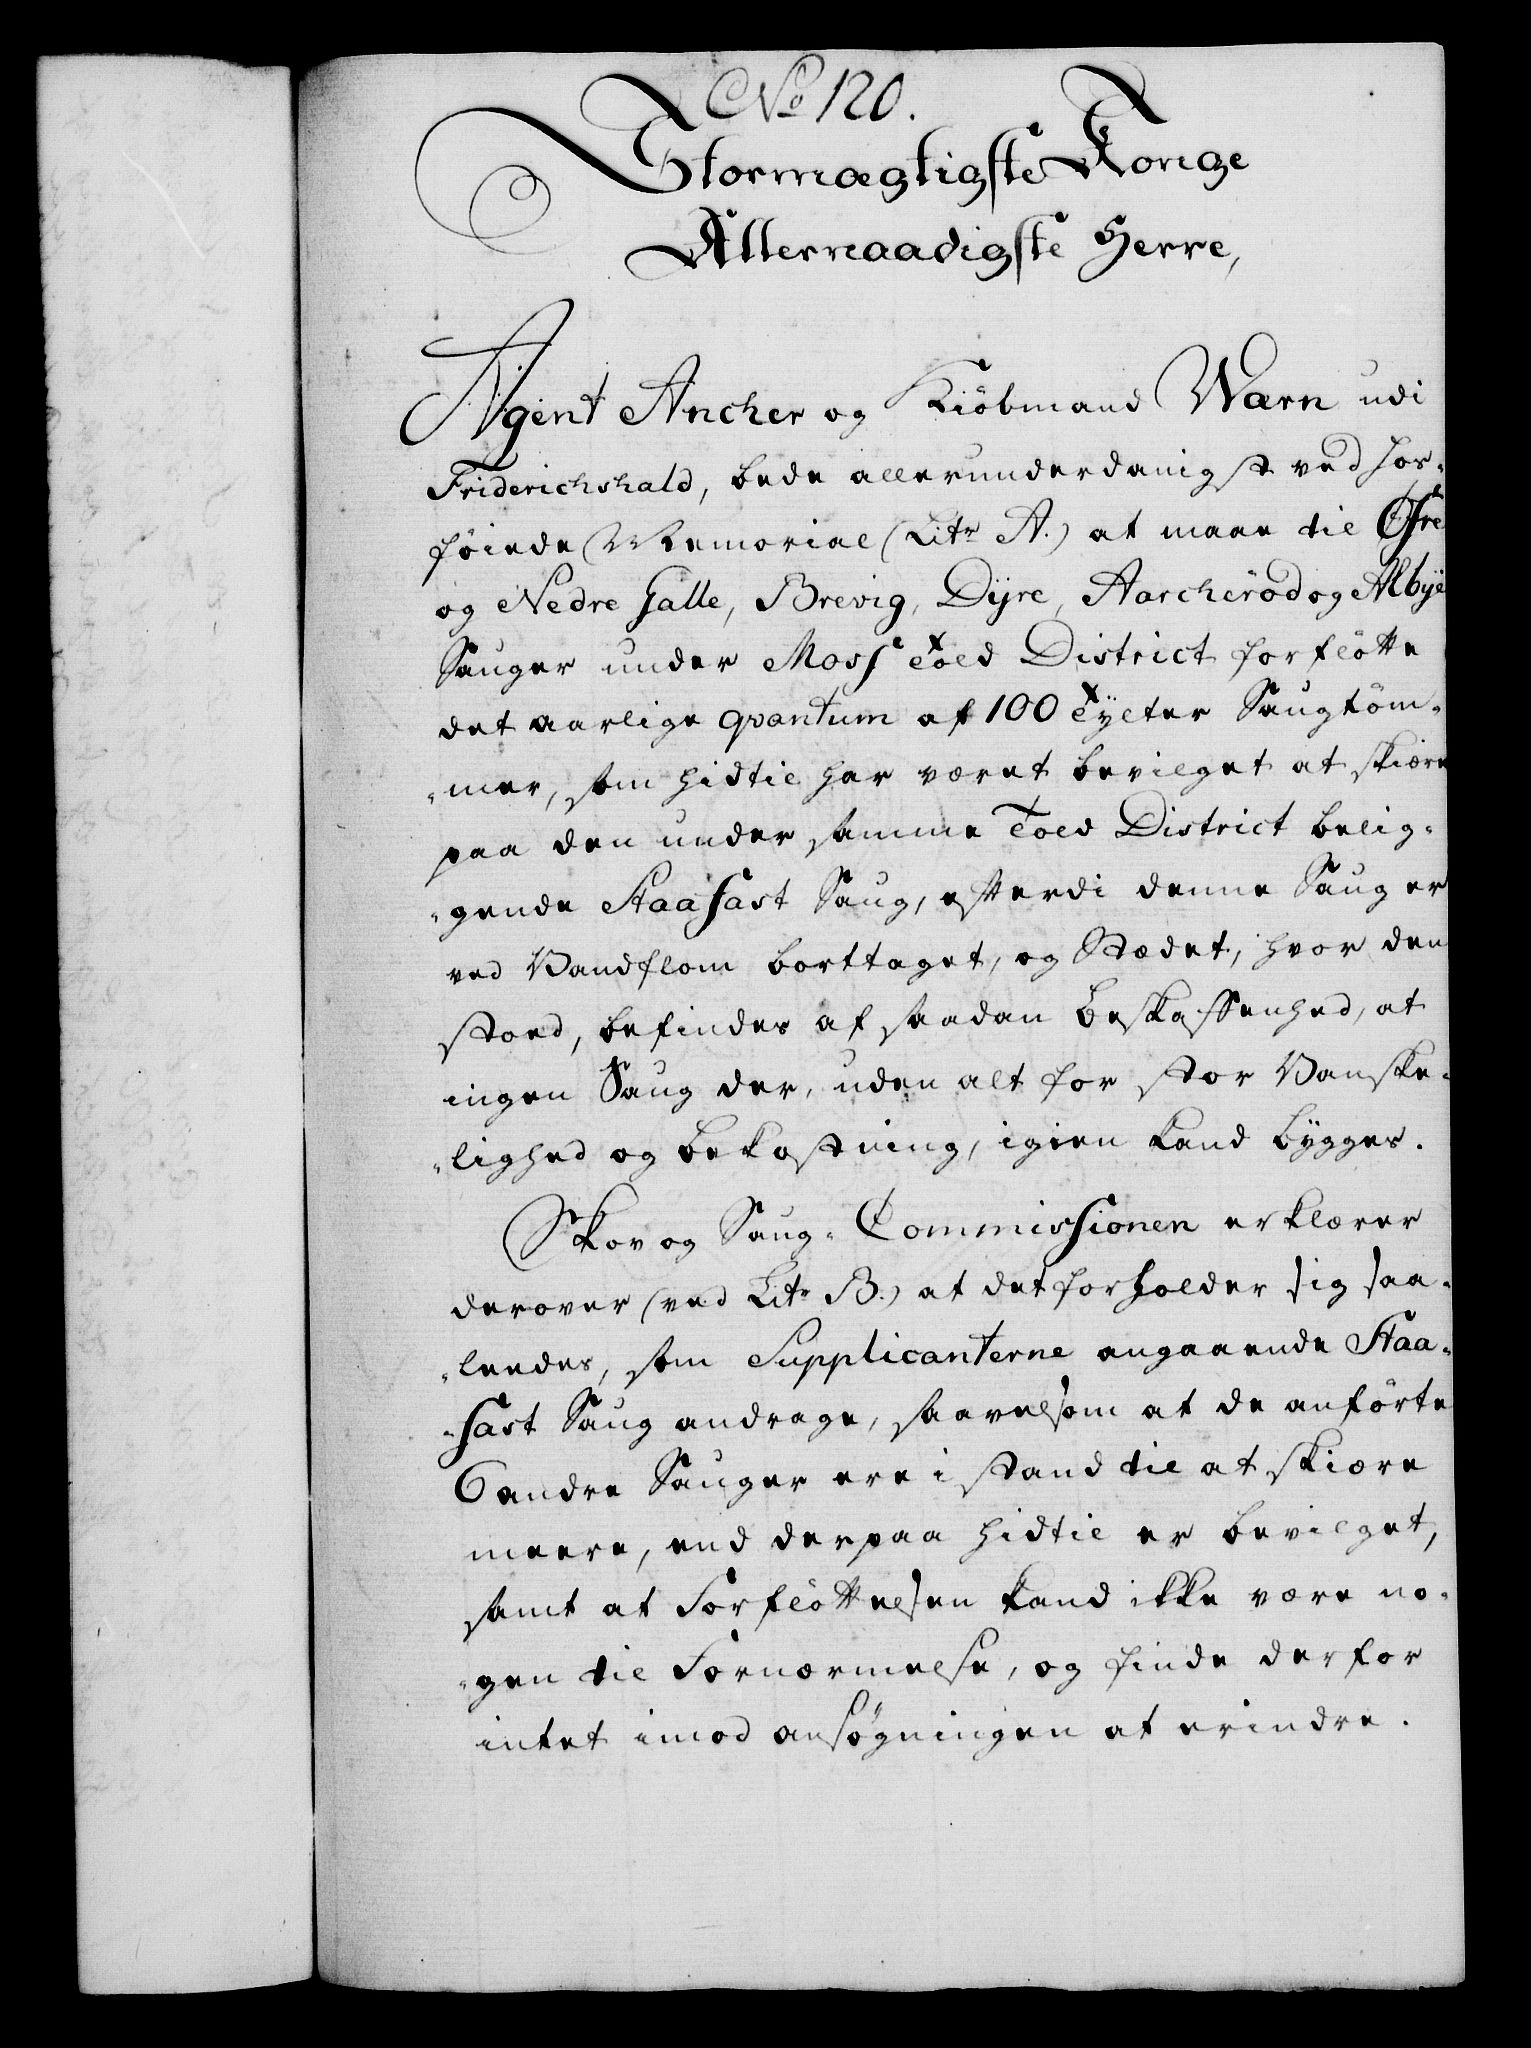 No 120.
Stormægtigste Konge
Allernaadigste Herre,
Agent Ancher og Kiöbmand Wærn udi
Friderichshald, bede allerunderdanigst ved hos-
föiede Memorial (Litr A.) at maae til Öfre
og Nedre Halle, Brevig, Dÿre, Aarcheröd og Albÿe
Sauger under Moss Told District forflötte
det aarlige qvantum af 100 Tÿlter Saugtöm-
-mer, som hidtil har været bevilget at skiære
paa den under samme Told District belig-
-gende Staafast Saug, efterdi denne Saug er
ved Vandflom borttaget, og Stædet, hvor den
stoed, befindes af saadan Beskaffenhed, at
ingen Saug der, uden alt for stor Vanske-
-lighed og Bekostning, igien kand bÿgges.
Skov og Saug-Commissionen erklærer
derover (ved Litr B.) at det forholder sig saa-
-leedes, som Supplicanterne angaaende Staa-
-fast Saug andrage, saavelsom at de anförte
6 andre Sauger ere i stand til at skiære
meere, end derpaa hidtil er bevilget,
samt at Forflöttelsen kand ikke være no-
-gen til Fornærmelse, og finde derfor
intet imod ansögningen at erindre.